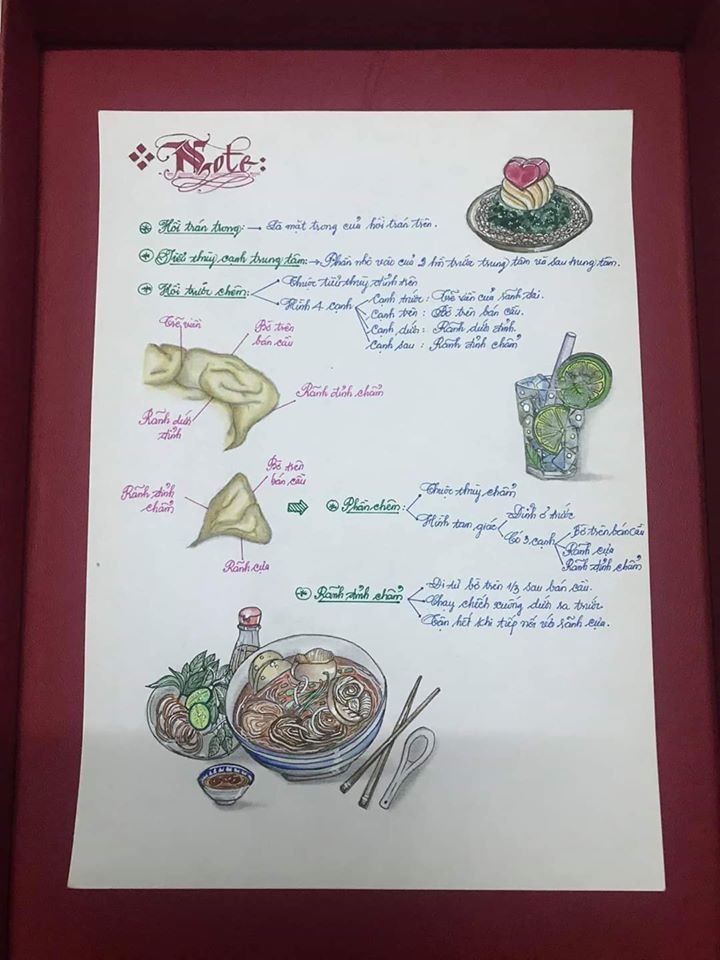 Note:
Hồi trán trong: → Là mặt trong của hồi trán trên.
Tiểu thùy cạnh trung tâm: → Phần nhô vào của 2 hồi trước trung tâm và sau trung tâm.
Hồi trước chêm:
Thuộc tiểu thùy đỉnh trên
Hình 4 cạnh
Cạnh trước: Trễ viền của rãnh đai.
Cạnh trên: Bờ trên bán cầu.
Cạnh dưới: Rãnh dưới đỉnh.
Cạnh sau: Rãnh đỉnh chẩm
Trễ viền
Bờ trên
bán cầu
Rãnh đỉnh chẩm
Rãnh dưới
đỉnh
Bờ trên
bán cầu
Rãnh đỉnh
chẩm
Rãnh cựa
Phần chêm:
Thuộc thùy chẩm
Hình tam giác
Đỉnh ở trước
Có 3 cạnh
Bờ trên bán cầu
Rãnh cựa
Rãnh đỉnh chẩm
Rãnh đỉnh chẩm
Đi từ bờ trên 1/3 sau bán cầu.
Chạy chếch xuống dưới ra trước.
Tận hết khi tiếp nối với rãnh cựa.